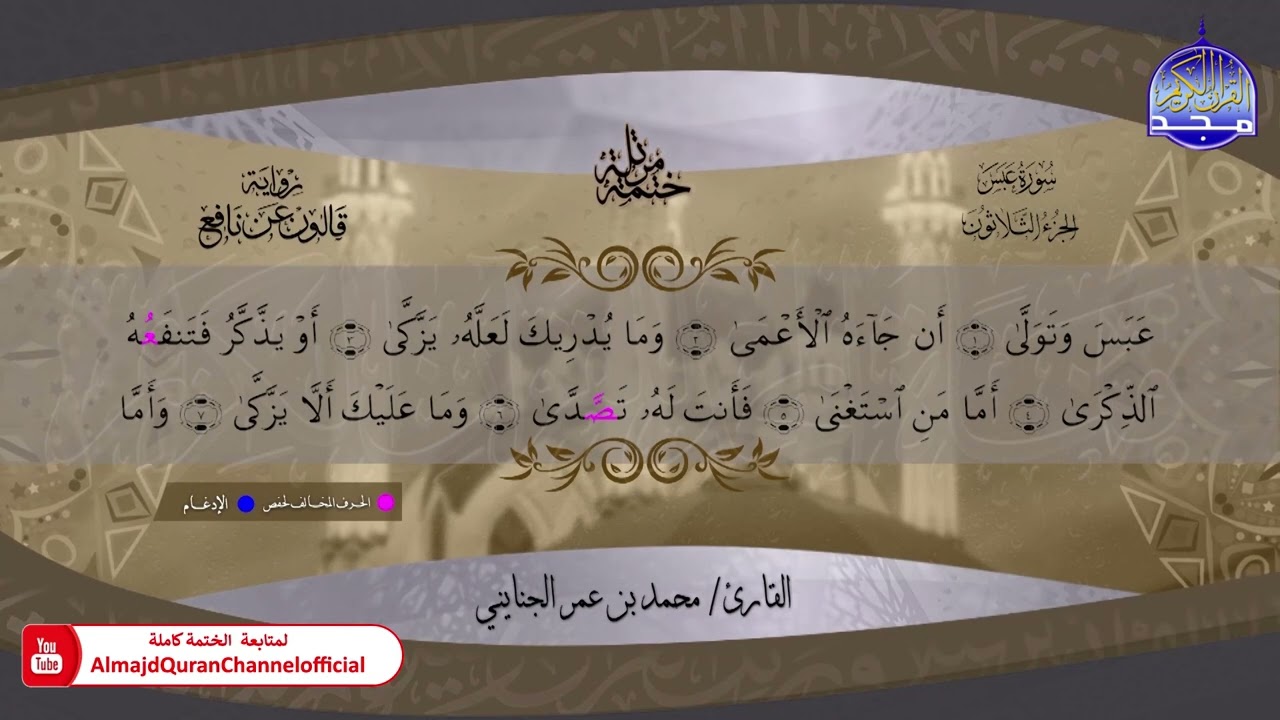 القرآن الكريم
مجد
ختمة مرتلة
سُورَةُ عَبَسَ
الجُزءُ الثَّلَاثُونَ
رواية
قالون عن نافع
عَبَسَ وَتَوَلَّىٰ ١ أَن جَآءَهُ ٱلْأَعْمَىٰ ٢ وَمَا يُدْرِيكَ لَعَلَّهُۥ يَزَّكَّىٰ ٣ أَوْ يَذَّكَّرُ فَتَنفَعُهُ
ٱلذِّكْرَىٰ ٤ أَمَّا مَنِ ٱسْتَغْنَىٰ ٥ فَأَنتَ لَهُۥ تَصَّدَّىٰ ٦ وَمَا عَلَيْكَ أَلَّا يَزَّكَّىٰ ٧ وَأَمَّا
الحرف المخالف لحفص
الإدغام
القارئ/ محمد بن عمر الجنايني
You Tube
لمتابعة الختمة كاملة
AlmajdQuranChannelofficial